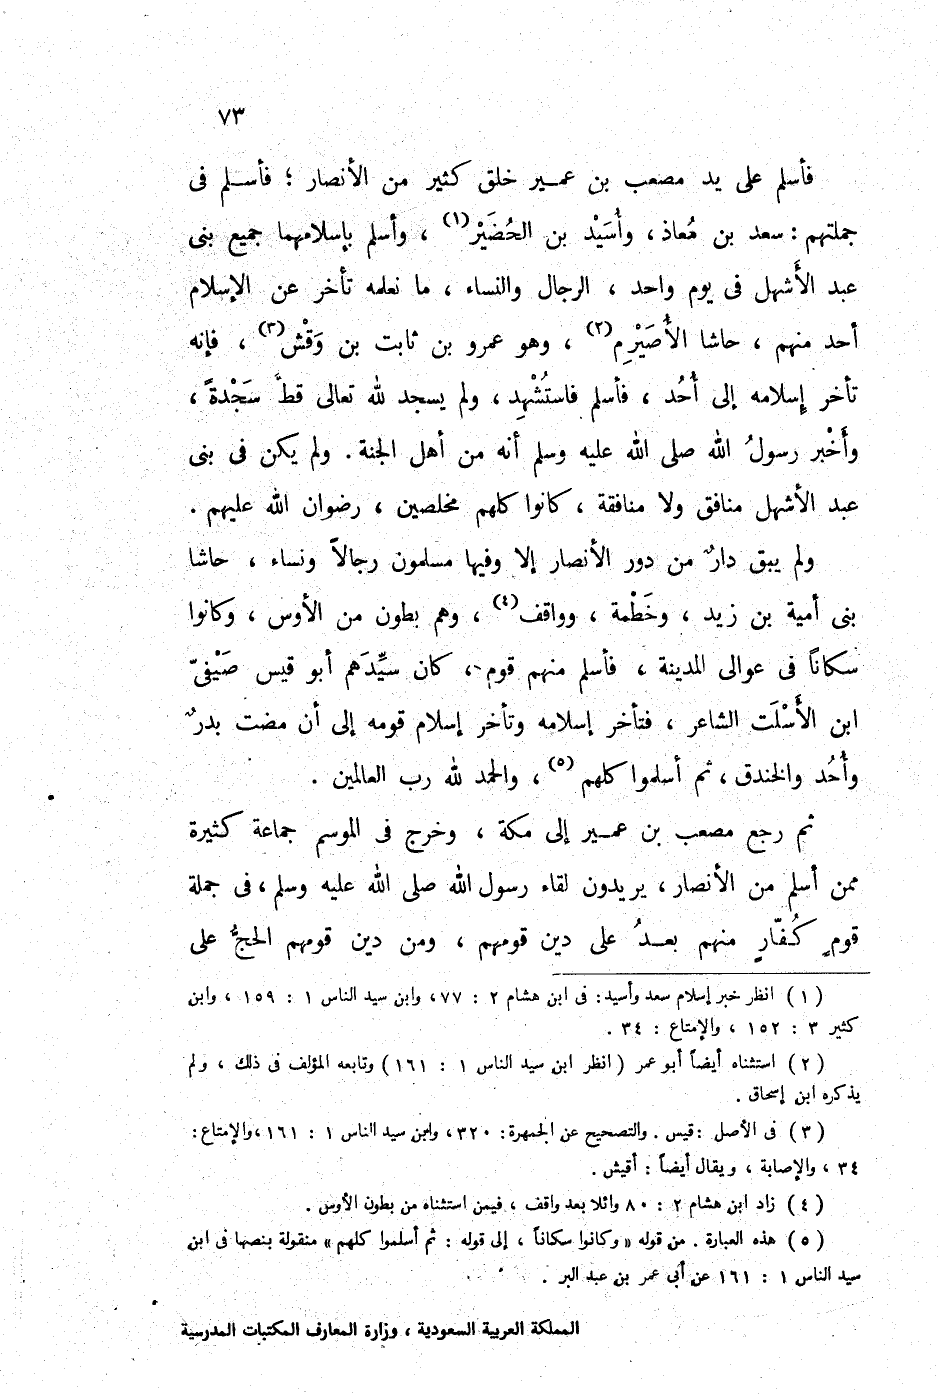 ٧٣
فأسلم على يد مصعب بن عمــير خلق كثير من الأنصار ؛ فأســلم فى
جملتهم : سعد بن مُعاذ ، وأُسَيْد بن الحُضَيْر (١) ، وأسلم بإسلامهما جميع بنى
عبد الأَشهل فى يوم واحد ، الرجال والنساء ، ما نعلمه تأخر عن الإسلام
أحد منهم ، حاشا الأُصَيْرِم (٢) ، وهو عمرو بن ثابت بن وَقْش (٣) ، فإنه
تأخر إسلامه إلى أُحُد ، فأسلم فاستُشْهِد ، ولم يسجد لله تعالى قطُّ سَجْدةً ،
وأَخْبر رسولُ الله صلى الله عليه وسلم أنه من أهل الجنة . ولم يكن فى بنى
عبد الأشهل منافق ولا منافقة ، كانوا كلهم مخلصين ، رضوان الله عليهم .
ولم يبق دارٌ من دور الأنصار إلا وفيها مسلمون رجالاً ونساء ، حاشا
بنى أمية بن زيد ، وخَطْمة ، وواقف (٤) ، وهم بطون من الأوس ، وكانوا
سكاناً فى عوالى المدينة ، فأسلم منهم قوم ، كان سيِّدَهم أبو قيس صَيْفىّ
ابن الأَسْلَت الشاعر ، فتأخر إسلامه وتأخر إسلام قومه إلى أن مضت بدرٌ
وأُحُد والخندق ، ثم أسلموا كلهم (٥) ، والحمد لله رب العالمين .
ثم رجع مصعب بن عمــير إلى مكة ، وخرج فى الموسم جماعة كثيرة
ممن أسلم من الأنصار ، يريدون لقاء رسول الله صلى الله عليه وسلم ، فى جملة
قومٍ كُفّارٍ منهم بعــدُ على دين قومهم ، ومن دين قومهم الحجُّ على
(١) انظر خبر إسلام سعد وأسيد : فى ابن هشام ٢ : ٧٧ ، وابن سيد الناس ١ : ١٥٩ ، وابن
كثير ٣ : ١٥٢ ، والإمتاع : ٣٤ .
(٢) استثناه أيضاً أبو عمر ( انظر ابن سيد الناس ١ : ١٦١ ) وتابعه المؤلف فى ذلك ، ولم
يذكره ابن إسحاق .
(٣) فى الأصل : قيس . والتصحيح عن الجمهرة : ٣٢٠ ، وابن سيد الناس ١ : ١٦١ ، والإمتاع :
٣٤ ، والإصابة ، ويقال أيضاً : أقيش .
(٤) زاد ابن هشام ٢ : ٨٠ وائلا بعد واقف ، فيمن استثناه من بطون الأوس .
(٥) هذه العبارة . من قوله « وكانوا سكاناً ، إلى قوله : ثم أسلموا كلهم » منقولة بنصها فى ابن
سيد الناس ١ : ١٦١ عن أبى عمر بن عبد البر .
المملكة العربية السعودية ، وزارة المعارف المكتبات المدرسية